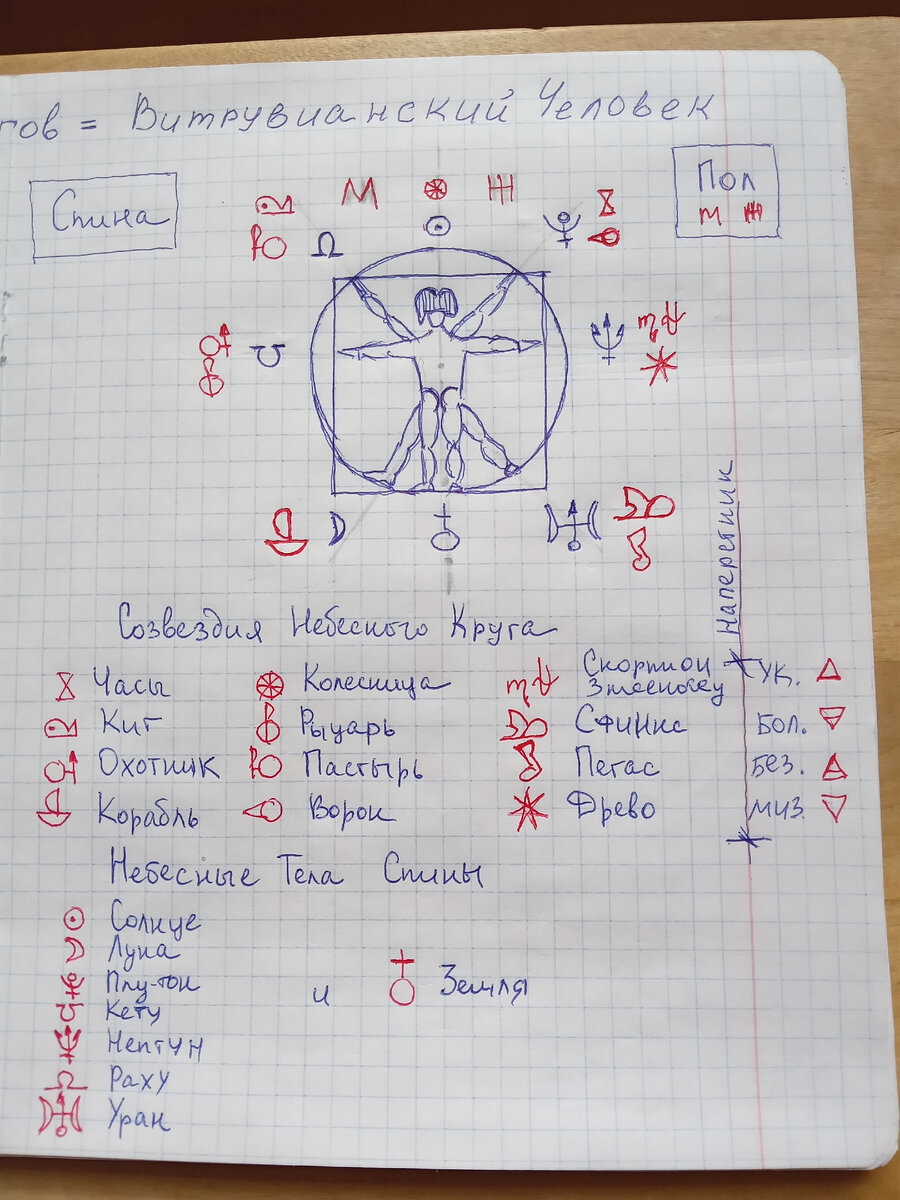 гов = Витрувианский Человек
Спина
Пол
М Ж
М Ж
Созвездия Небесного Круга
Наперстник
Часы Колесница Скорпион Змееносец УК.
Кит Рыцарь Сфинкс БОЛ.
Охотник Пастырь Пегас БЕЗ.
Корабль Ворон Древо МИЗ.
Небесные Тела Спины
Солнце
Луна
Плутон
Кету
и Земля
Нептун
Раху
Уран